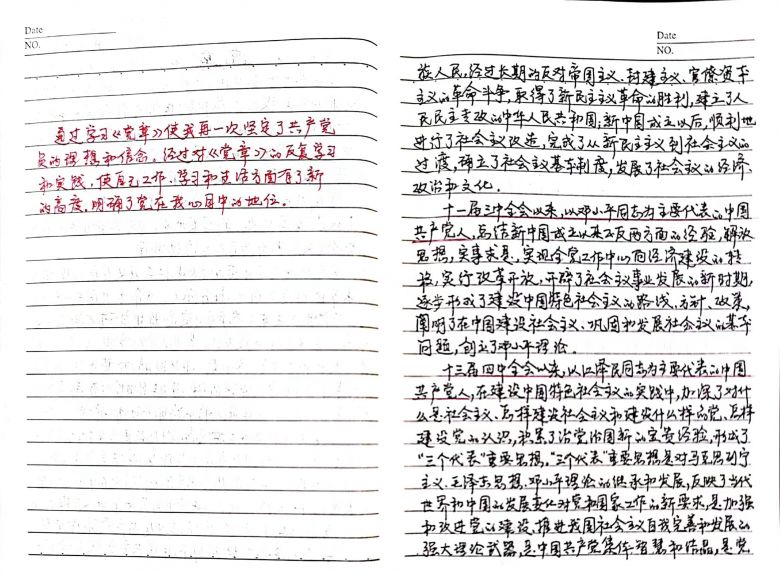 Date
NO.
通过学习《党章》使我再一次坚定了共产党
员的理想和信念。经过对《党章》的反复学习
和实践，使自己工作、学习和生活方面有了新
的高度，明确了党在我心目中的地位。
Date
NO.
族人民，经过长期的反对帝国主义、封建主义、官僚资本
主义的革命斗争，取得了新民主主义革命的胜利，建立了人
民民主专政的中华人民共和国；新中国成立以后，顺利地
进行了社会主义改造，完成了从新民主主义到社会主义的
过渡，确立了社会主义基本制度，发展了社会主义的经济、
政治和文化。
十一届三中全会以来，以邓小平同志为主要代表的中国
共产党人，总结新中国成立以来正反两方面的经验，解放
思想，实事求是，实现全党工作中心向经济建设的转
移，实行改革开放，开辟了社会主义事业发展的新时期，
逐步形成了建设中国特色社会主义的路线、方针、政策，
阐明了在中国建设社会主义、巩固和发展社会主义的基本
问题，创立了邓小平理论。
十三届四中全会以来，以江泽民同志为主要代表的中国
共产党人，在建设中国特色社会主义的实践中，加深了对什
么是社会主义、怎样建设社会主义和建设什么样的党、怎样
建设党的认识，积累了治党治国新的宝贵经验，形成了
“三个代表”重要思想。“三个代表”重要思想是对马克思列宁
主义、毛泽东思想、邓小平理论的继承和发展，反映了当代
世界和中国的发展变化对党和国家工作的新要求，是加强
和改进党的建设、推进我国社会主义自我完善和发展的
强大理论武器，是中国共产党集体智慧和结晶，是党